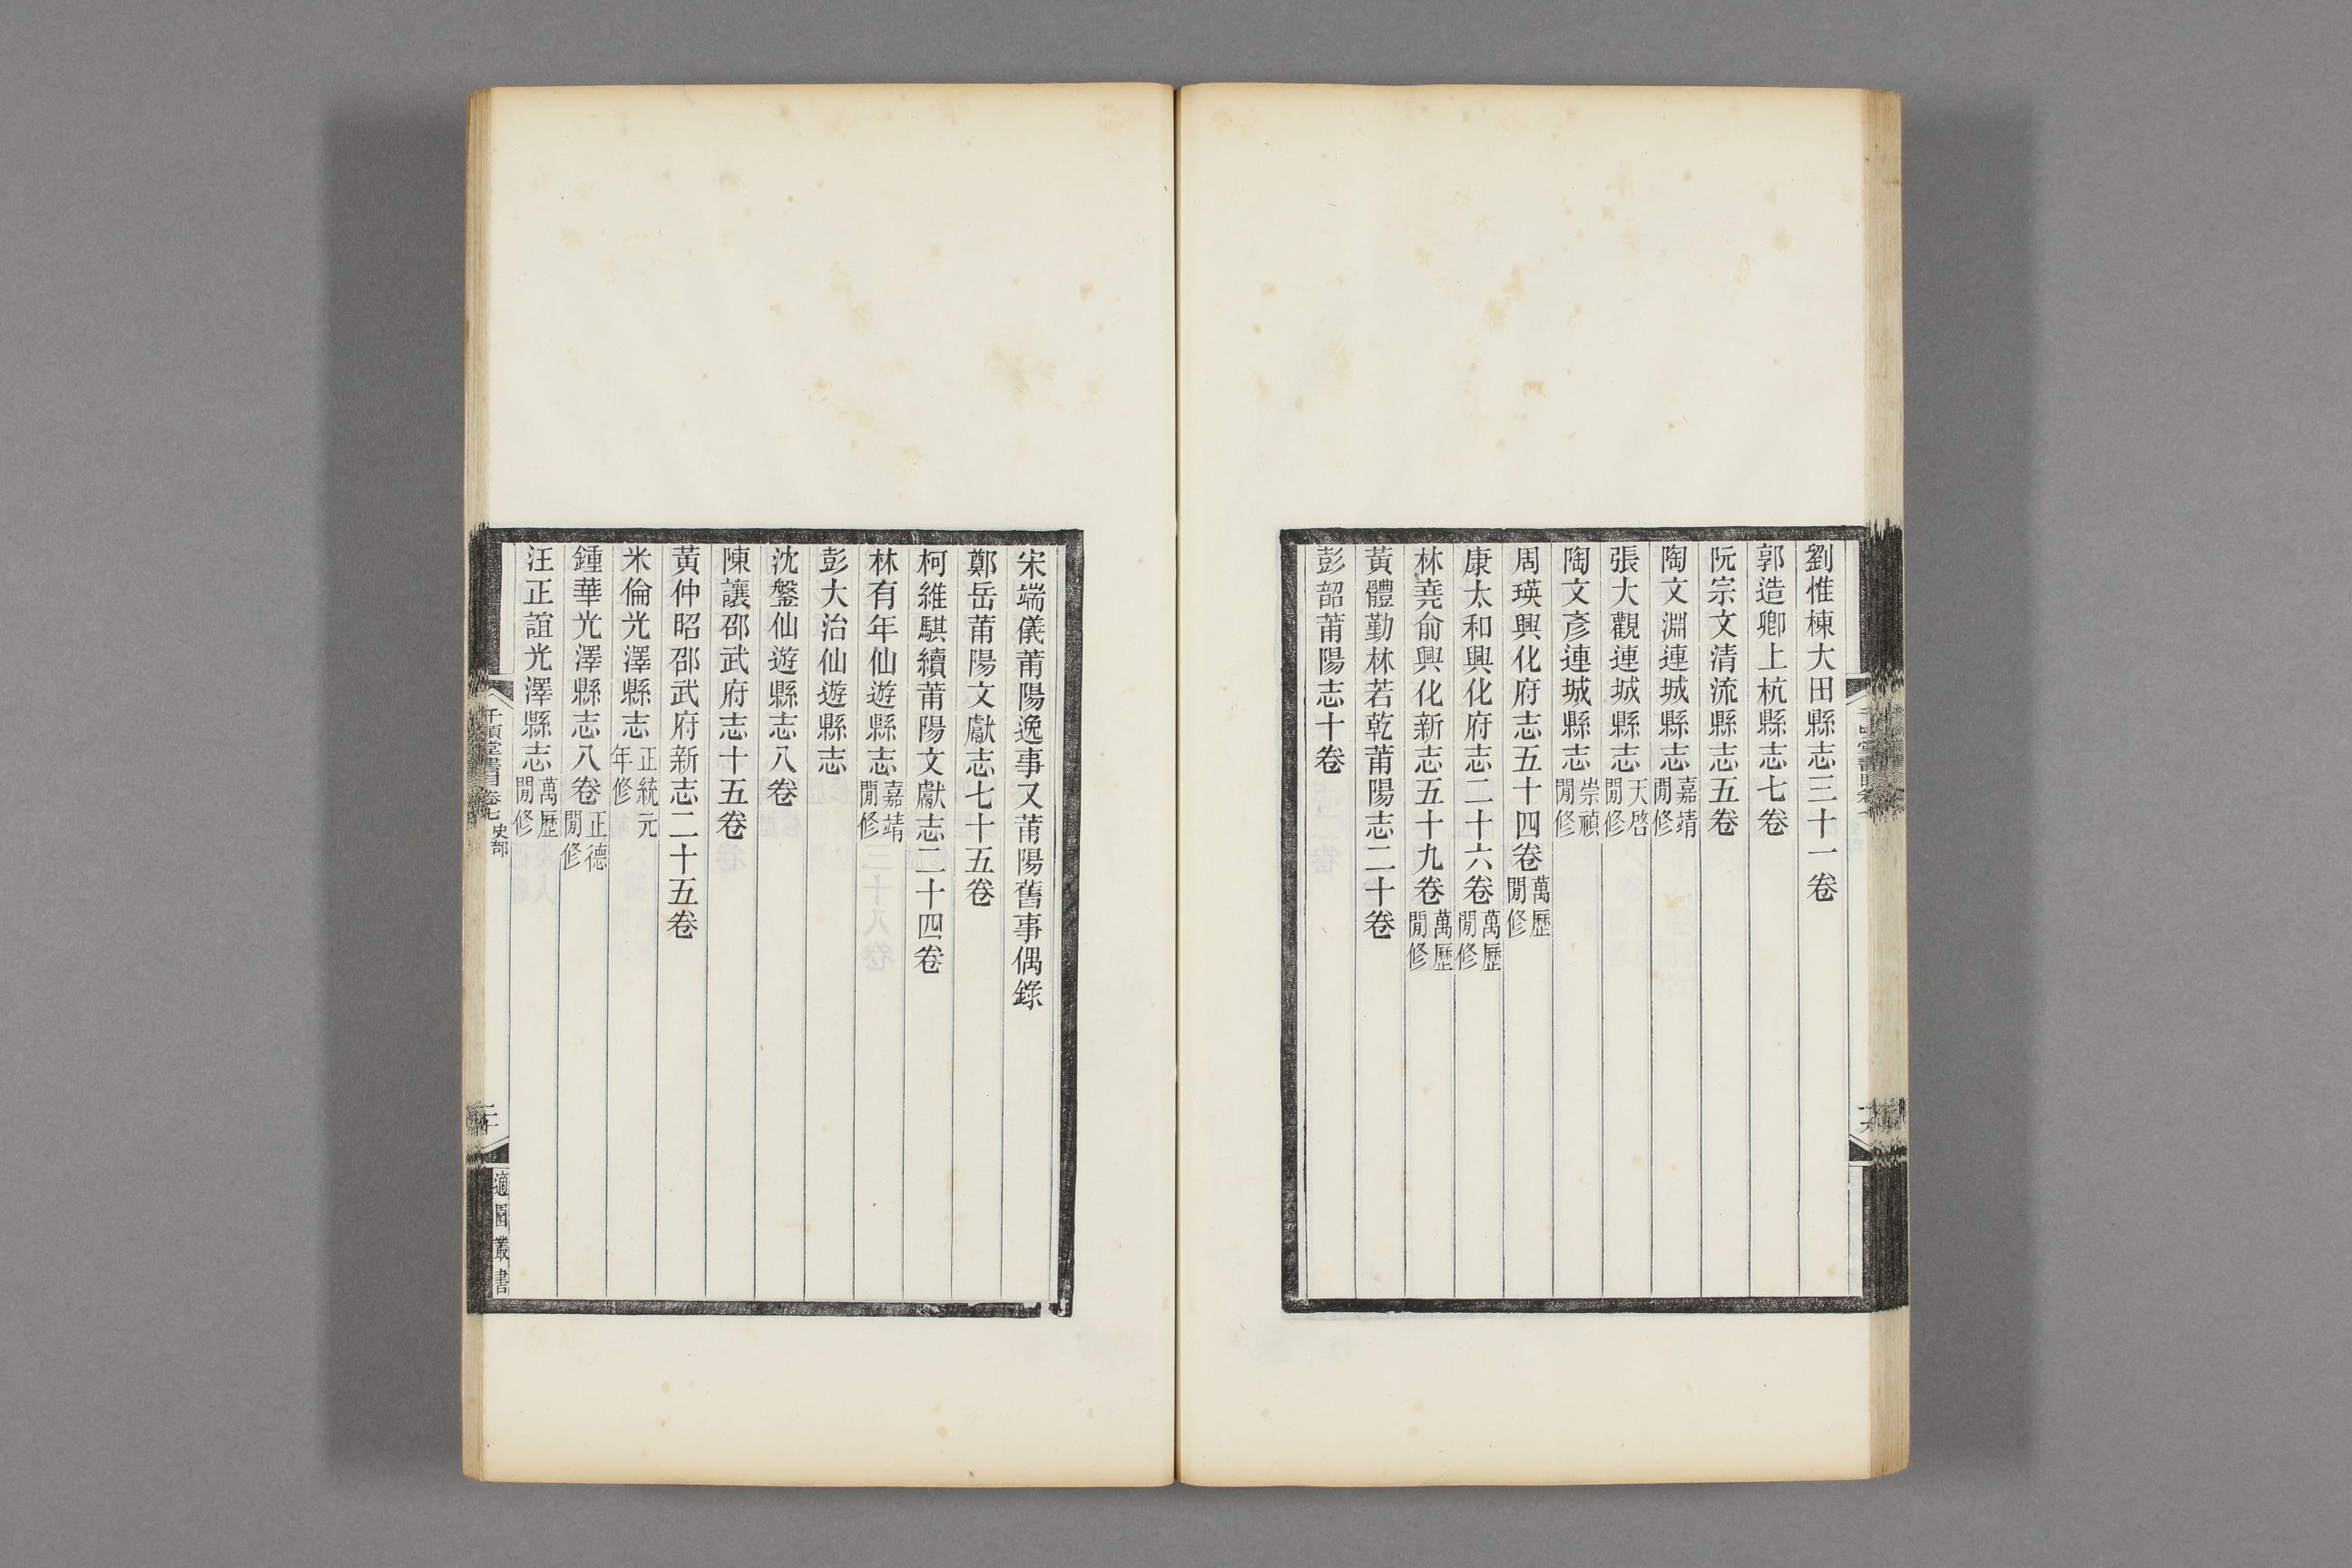 劉惟棟大田縣志三十一卷
郭造卿上杭縣志七卷
阮宗文清流縣志五卷
陶文淵連城縣志嘉靖閒修
張大觀連城縣志天啓閒修
陶文彥連城縣志崇禎閒修
周瑛興化府志五十四卷萬歷閒修
康太和興化府志二十六卷萬歷閒修
林堯俞興化新志五十九卷萬歷閒修
黃體勤林若乾莆陽志二十卷
彭韶莆陽志十卷
宋端儀莆陽逸事又莆陽舊事偶錄
鄭岳莆陽文獻志七十五卷
柯維騏續莆陽文獻志二十四卷
林有年仙遊縣志嘉靖閒修
彭大治仙遊縣志
沈鎜仙遊縣志八卷
陳讓邵武府志十五卷
黃仲昭邵武府新志二十五卷
米倫光澤縣志正統元年修
鍾華光澤縣志八卷正德閒修
汪正誼光澤縣志萬歷閒修
千頃堂書目卷七 史部
適園叢書